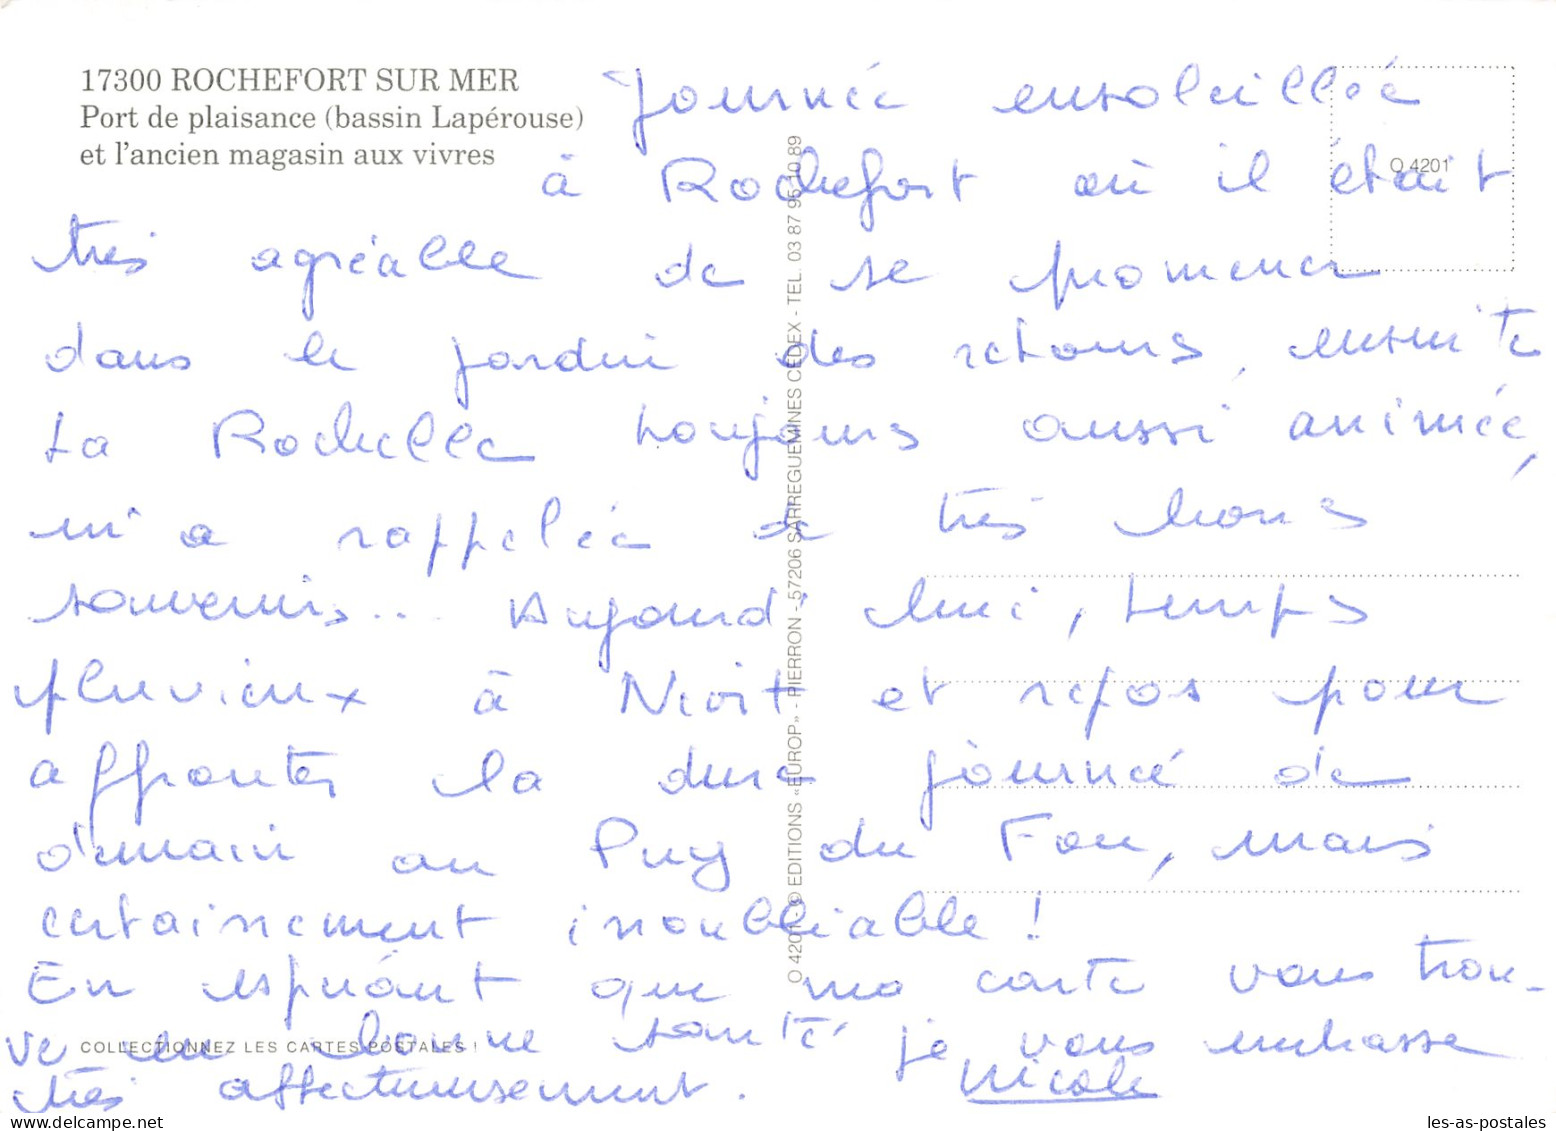 17300 ROCHEFORT SUR MER
Port de plaisance (bassin Lapérouse)
et l'ancien magasin aux vivres
O 4201
Journée ensoleillée
à Rochefort où il était
très agréable de se promener
dans le jardin des retours, ensuite
La Rochelle toujours aussi animée,
m'a rappelée de très bons
souvenirs... Aujourd'hui, temps
pluvieux à Niort et repos pour
affronter la dure journée de
demain au Puy du Fou, mais
certainement inoubliable !
En espérant que ma carte vous trou-
ve en bonne santé je vous embrasse
très affectueusement.
nicole
O 4201 © EDITIONS «EUROP» - PIERRON - 57206 SARREGUEMINES CEDEX - TEL. 03 87 95 10 89
COLLECTIONNEZ LES CARTES POSTALES !
les-as-postales